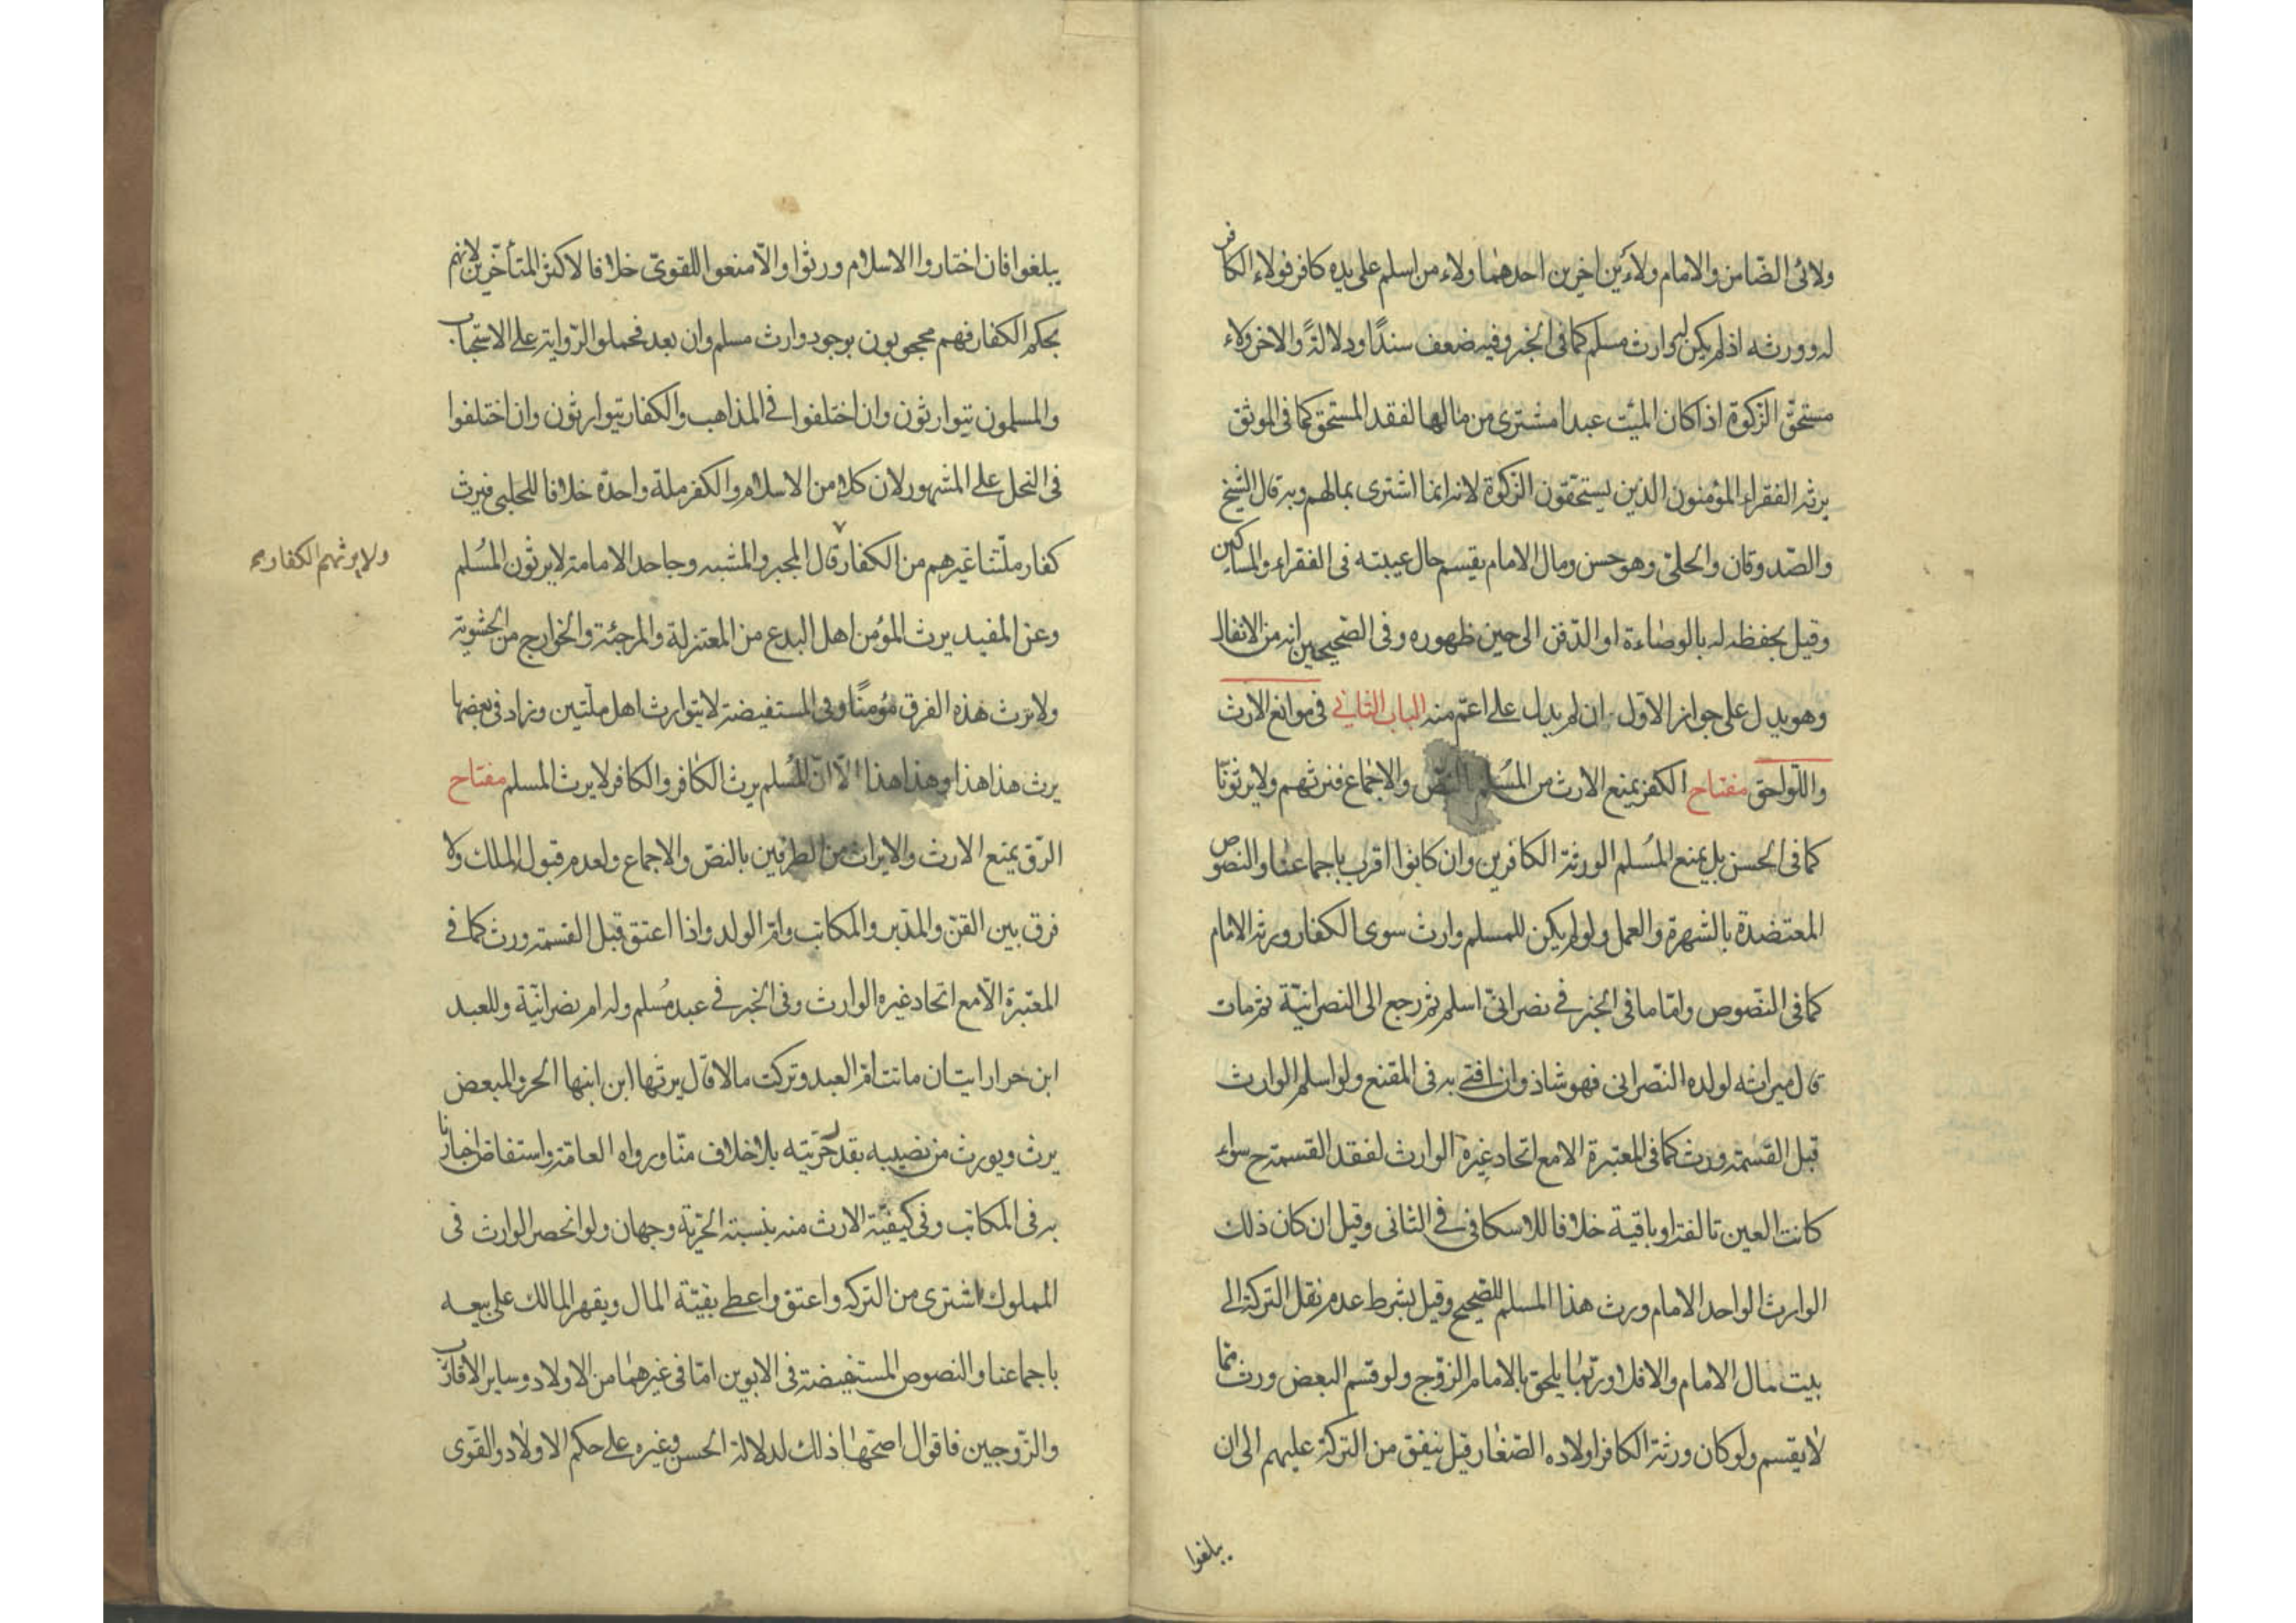 ولائى الضّامن والامام ولائين اخرين احدهما ولاء من اسلم على يده كافر فولاء الكافر
له وورثه اذ لم يكن له وارث مسلم كما فى الخبر وفيه ضعف سندًا ودلالةً والاخر ولاء
مستحقّ الزكوة اذا كان الميّت عبدا مشترى من مالها لفقد المستحق كما فى الموثق
يرثه الفقراء المؤمنون الذين يستحقون الزكوة لانه انما اشترى بمالهم وبه قال الشيخ
والصّدوقان والحلىّ وهو حسن ومال الامام يقسم حال غيبته فى الفقراء والمساكين
وقيل بحفظه له بالوصاءة او الدّفن الى حين ظهوره وفى الصّحيحين انه من الانفال
وهو يدل على جواز الاول ان لم يدل على اعمّ منه الباب الثانى فى موانع الارث
واللّواحق مفتاح الكفر يمنع الارث من المسُلم بالنصّ والاجماع فنرثهم ولا يرثونّا
كما فى الحسن بل يمنع المسُلم الورثة الكافرين وان كانوا اقرب باجماعنا والنصوص
المعتضدة بالشهرة والعمل ولو لم يكن للمسلم وارث سوى الكفار ورثه الامام
كما فى النّصوص وامّا ما فى الخبر فى نصرانىّ اسلم ثم رجع الى النصرانيّة ثم مات
قال ميراثه لولده النّصرانى فهو شاذ وان افتى به فى المقنع ولو اسلم الوارث
قبل القسمة ورث كما فى المعتبرة الا مع اتحاد غيره الوارث لفقد القسمة ح سواء
كانت العين تالفة او باقية خلافا للاسكافى فى الثانى وقيل ان كان ذلك
الوارث الواحد الامام ورث هذا المسلم للصّحيح وقيل بشرط عدم نقل التركة الى
بيت مال الامام والا فلا وربّما يلحق بالامام الزوّج ولو قسم البعض ورث مما
لا يقسم ولو كان ورثة الكافر اولاده الصّغار قيل ينفق من التركة عليهم الى ان
يبلغوا
يبلغوا فان اختاروا الاسلام ورثوا والّا منعوا للقوىّ خلافا لاكثر المتأخّرين لانهم
بحكم الكفار فهم محجوبون بوجود وارث مسلم وان بعد فحملوا الرّواية على الاستحباب
والمسلمون يتوارثون وان اختلفوا فى المذاهب والكفار يتوارثون وان اختلفوا
فى النحل على المشهور لان كلا من الاسلام والكفر ملة واحدة خلافا للحلبى فيرث
كفار ملّتنا غيرهم من الكفار قال المجبر والمشبه وجاحد الامامة لا يرثون المسُلم
ولا يرثهم الكفار
وعن المفيد يرث المؤمن اهل البدع من المعتزلة والمرجئة والخوارج من الحشوية
ولا يرث هذه الفرق مؤمنًا وفى المستفيضة لا يتوارث اهل ملّتين وزاد فى بعضها
يرث هذا هذا وهذا هذا الّا انّ المسُلم يرث الكافر والكافر لا يرث المسلم مفتاح
الرّق يمنع الارث والايراث من الطرفين بالنصّ والاجماع ولعدم قبول الملك ولا
فرق بين القنّ والمدّبر والمكاتب وام الولد واذا اعتق قبل القسمة ورث كما فى
المعتبرة الّا مع اتحاد غيره الوارث وفى الخبر فى عبد مُسلم وله ام نصرانيّة وللعبد
ابن حر ارايت ان ماتت امّ العبد وتركت مالا قال يرثها ابن ابنها الحر والمبعض
يرث ويورث من نصيبه بقدر حرّيته بلا خلاف منّا ورواه العامة واستفاض اخبارنا
به فى المكاتب وفى كيفيّة الارث منه بنسبة الحرّية وجهان ولو انحصر الوارث فى
المملوك اشترى من التركة واعتق واعطى بقيّة المال ويقهر المالك على بيعه
باجماعنا والنصوص المستفيضة فى الابوين امّا فى غيرهما من الاولاد وساير الاقارب
والزّوجين فاقوال اصحّها ذلك لدلالة الحسن وغيره على حكم الاولاد والقوى